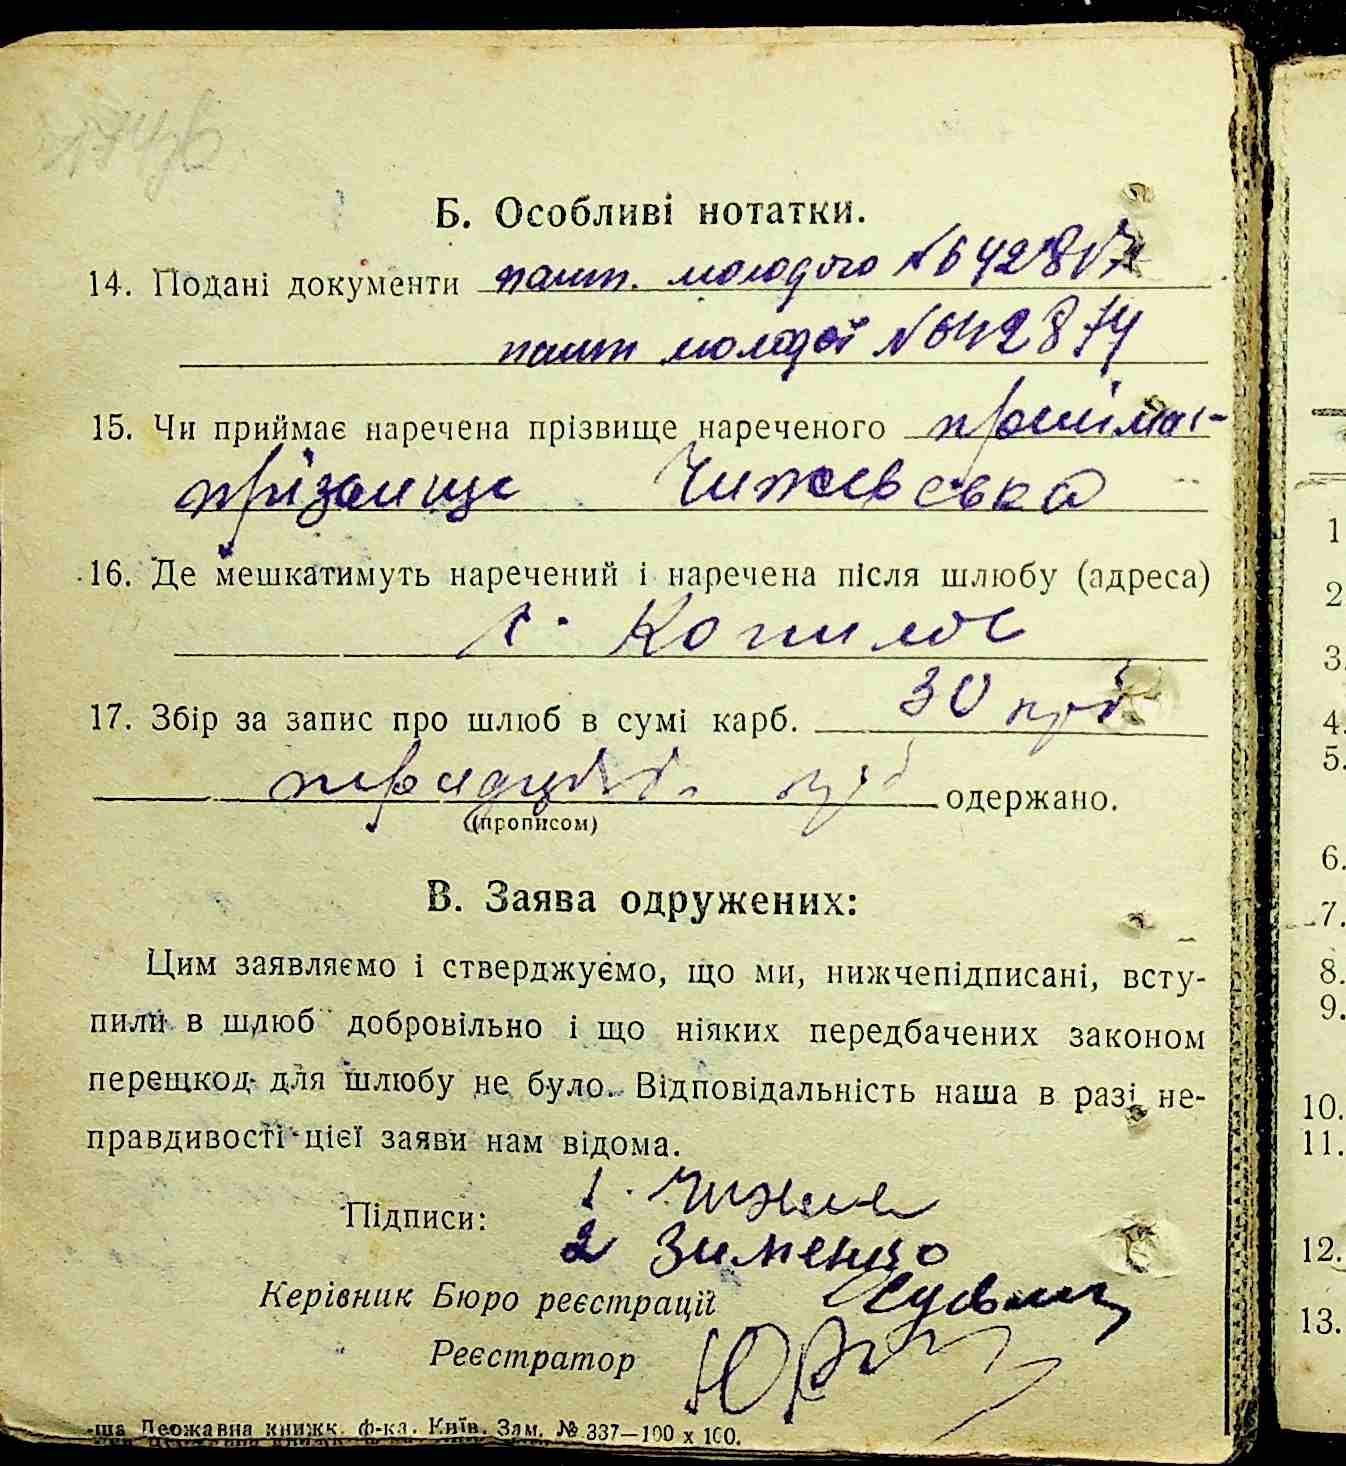 Б. Особливі нотатки.
14. Подані документи пашп. молодого №642817
пашп молодої №642874
15. Чи приймає наречена прізвище нареченого приймає
прізвище Чижевська
16. Де мешкатимуть наречений і наречена після шлюбу (адреса)
с. Копилов
17. Збір за запис про шлюб в сумі карб. 30 крб
крб одержано.
(прописом)
В. Заява одружених:
Цим заявляємо і стверджуємо, що ми, нижчепідписані, всту-
пили в шлюб добровільно і що ніяких передбачених законом
перешкод для шлюбу не було. Відповідальність наша в разі не-
правдивості цієї заяви нам відома.
Підписи: 1.
2 Зименко
Керівник Бюро реєстрації
Реєстратор
-ша Державна книжк. ф-ка. Київ. Зам. № 337—100 х 100.
1
2
3.
4.
5.
6.
7.
8.
9.
10.
11.
12.
13.